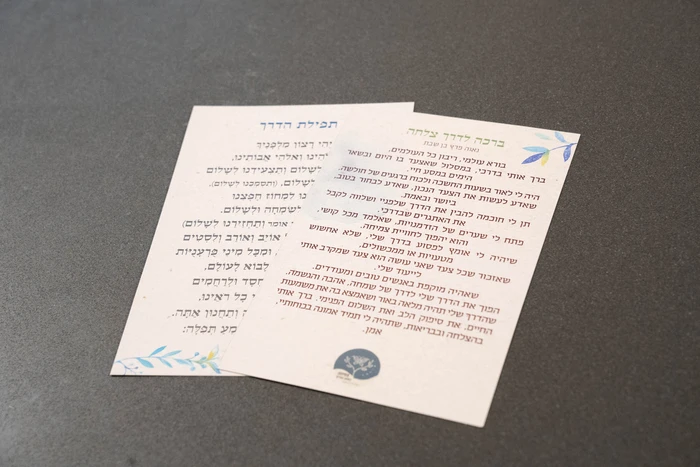 תפילת הדרך
יהי רצון מלפניך
יהינו ואלהי אבותינו,
לשלום ותצעידנו לשלום
לשלום, (ותסמכנו לשלום)
נו למחוז חפצנו
לשמחה ולשלום.
אומר ותחזירנו לשלום)
אויב ואורב ולסטים
ומכל מיני פרעניות
לבוא לעולם,
חסד ולרחמים
כל ראינו,
ותחנון אתה.
מע תפלה:
ברכה לדרך צלחה
נאוה פרץ בן שבת
בורא עולמי, ריבון כל העולמים,
ברך אותי בדרכי, במסלול שאצעד בו היום ובשאר
הימים במסע חיי.
היה לי לאור בשעות החשכה ולכוח ברגעים של חולשה.
שאדע לעשות את הצעד הנכון, שאדע לבחור בטוב,
ביושר ובאמת.
תן לי חוכמה להבין את הדרך שלפניי ושלווה לקבל
את האתגרים שבדרכי.
פתח לי שערים של הזדמנויות, שאלמד מכל קושי,
והוא יהפוך לחוויית צמיחה.
שיהיה לי אומץ לפסוע בדרך שלי, שלא אחשוש
מטעויות או ממכשולים.
שאזכור שכל צעד שאני עושה הוא צעד שמקרב אותי
לייעוד שלי.
שאהיה מוקפת באנשים טובים ומעודדים.
הפוך את הדרך שלי לדרך של שמחה, אהבה והגשמה,
שהדרך שלי תהיה מלאה באור ושאמצא בה את משמעות
החיים, את סיפוק הלב ואת השלום הפנימי. ברך אותי
בהצלחה ובבריאות, שתהיה לי תמיד אמונה בכוחותיי,
אמן.